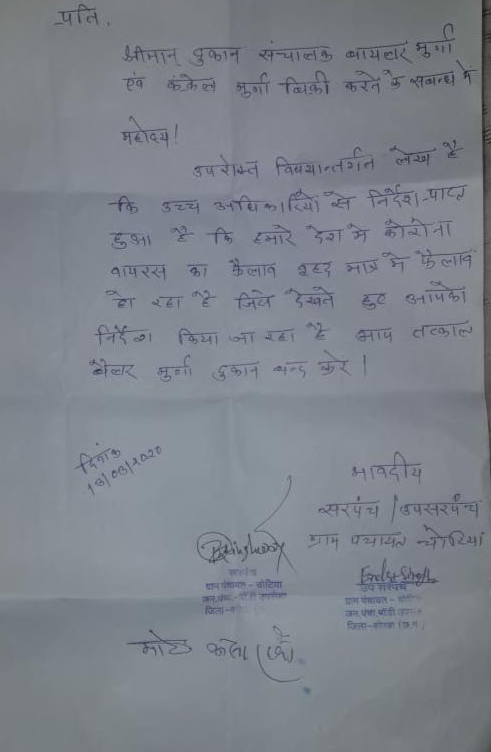 प्रति,
श्रीमान् दुकान संचालक बायलर मुर्गा
एवं कंकेल मुर्गा बिक्री करने के सबन्ध में
महोदय!
उपरोक्त विषयान्तर्गत लेख है
कि उच्च अधिकारियों से निर्देश प्राप्त
हुआ है कि हमारे देश मे कोरोना
वायरस का फैलाव वृहद मात्रा मे फैलाव
हो रहा है जिसे देखते हुए आपको
निर्देश किया जा रहा है आप तत्काल
बैलर मुर्गा दुकान बन्द करे।
दिनांक
2020
भावदीय
सरपंच / उपसरपंच
ग्राम पंचायत चोटिया
सरपंच
ग्राम पंचायत - चोटिया
जिला-
उप सरपंच
ग्राम पंचायत -
जिला-